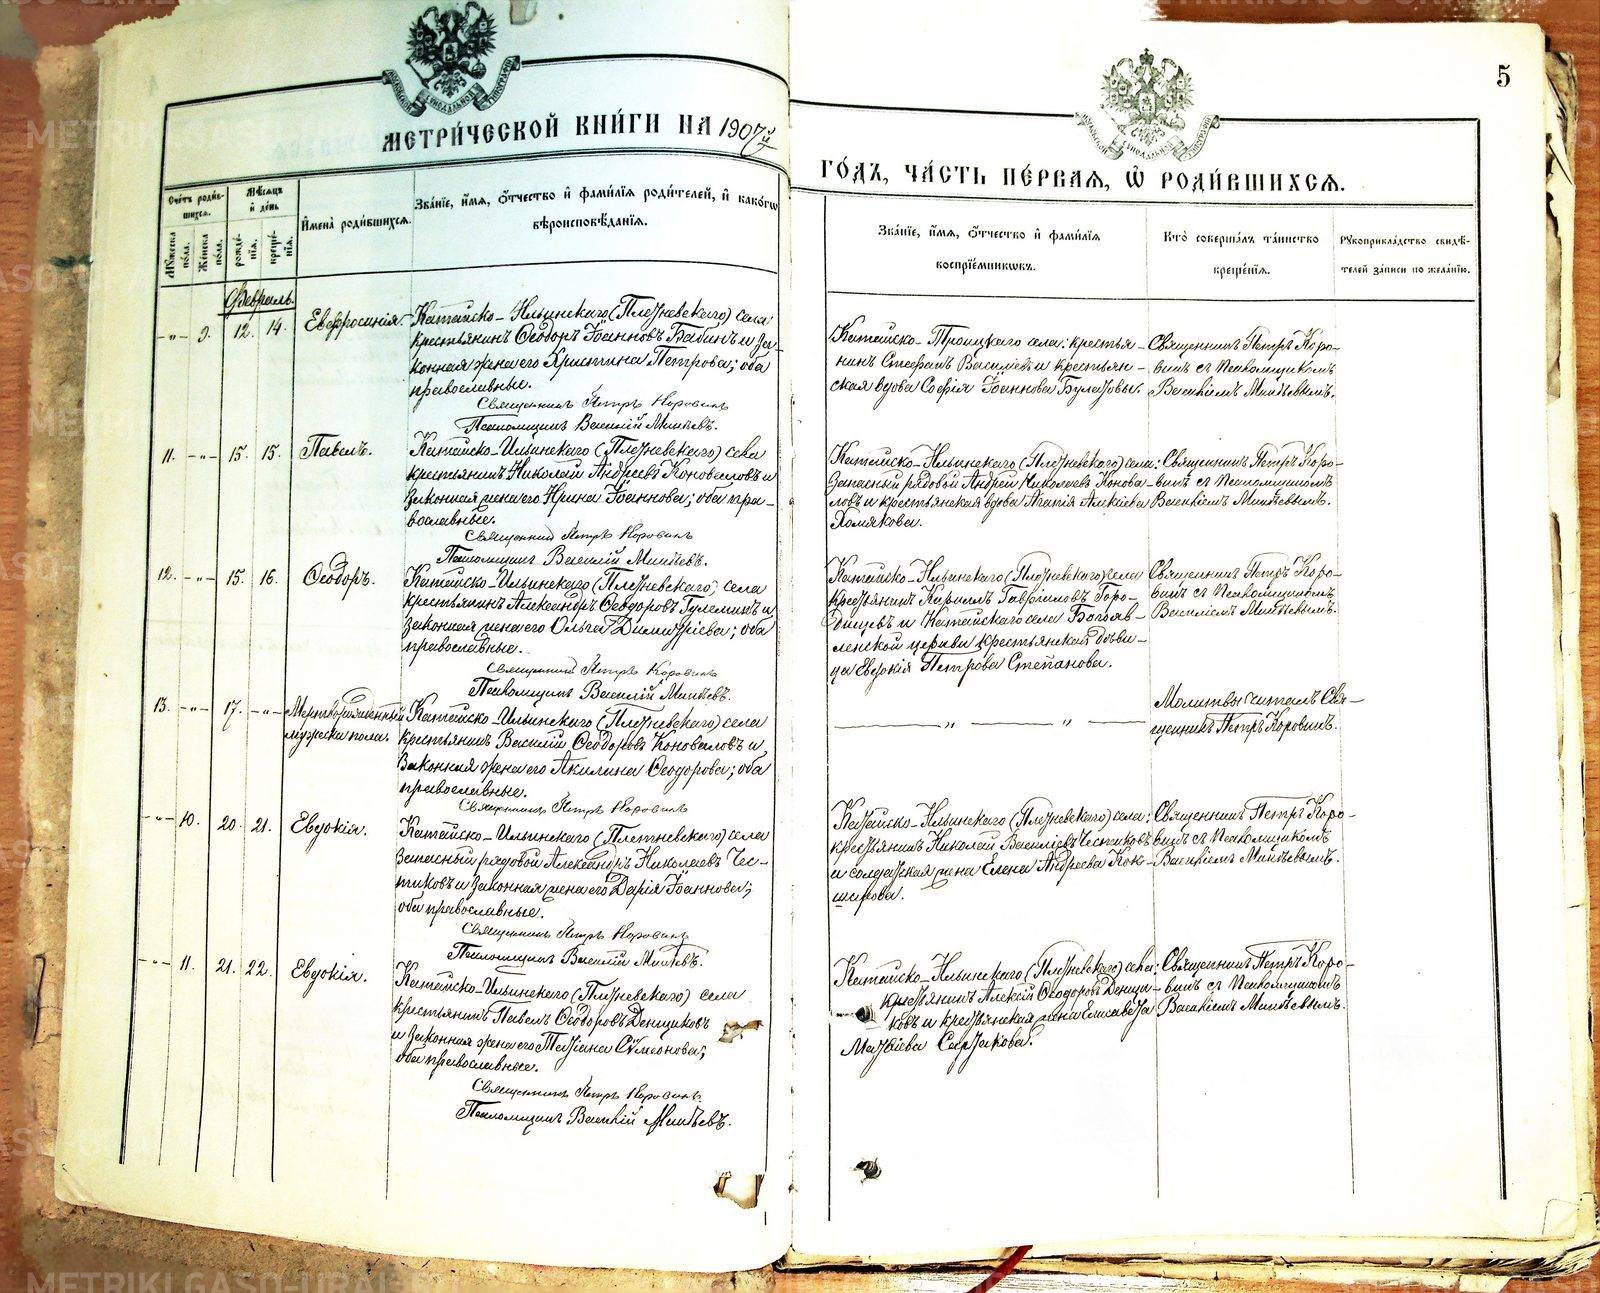 5
МЕТРИ́ЧЕСКОЙ КНИ́ГИ НА 1907й
ГО́ДЪ, ЧА́СТЬ ПЕ́РВАЯ, Ѡ РОДИ́ВШИХСЯ.
Сче́тъ роди́в-
шихся.
Мꙋ́жеска пола.
Же́нска пола.
Мѣ́сяцъ
и́ де́нь
рожде́-
нія.
креще́-
нія.
И́мена̀ роди́вшихся.
Зва́ніе, и́мя, ѻ́тчество и́ фами́лія роди́телей, и́ како́гѡ
вѣроисповѣ́данія.
Зва́ніе, и́мя, ѻ́тчество и́ фами́лія
воспріе́мникѡвъ.
Кто̀ соверша́лъ та́инство
креще́нія.
Рꙋкоприкла́дство свидѣ́-
телей за́писи по жела́нію.
Февраль.
-„- 9. 12. 14. Евфросинія.
Катайско-Ильинскаго (Плотневскаго) села
крестьянинъ Ѳеодоръ Іоанновъ Бабинъ и за-
конная жена его Христина Петрова; оба
православные.
Священникъ Петръ Коровинъ
Псаломщикъ Василій Минѣевъ.
Катайско-Троицкаго села: крестья-
нинъ Стефанъ Васильевъ и крестьян-
ская вдова Софія Іоаннова Булатовы.
Священникъ Петръ Коро-
винъ съ Псаломщикомъ
Василіемъ Минѣевымъ.
11. -„- 15. 15. Павелъ.
Катайско-Ильинскаго (Плотневскаго) села
крестьянинъ Николай Андреевъ Коноваловъ и
законная жена его Ирина Іоаннова; оба пра-
вославные.
Священникъ Петръ Коровинъ
Псаломщикъ Василій Минѣевъ.
Катайско-Ильинскаго (Плотневскаго) села:
Запасный рядовой Андрей Николаевъ Конова-
ловъ и крестьянская вдова Агапія
Хомякова.
Священникъ Петръ Коро-
винъ съ Псаломщикомъ
Василіемъ Минѣевымъ.
12. -„- 15. 16. Ѳеодоръ.
Катайско-Ильинскаго (Плотневскаго) села
крестьянинъ Александръ Ѳеодоровъ и
законная жена его Ольга Димитріева; оба
православные.
Священникъ Петръ Коровинъ
Псаломщикъ Василій Минѣевъ.
Катайско-Ильинскаго (Плотневскаго) села
крестьянинъ Кириллъ Гавріиловъ Горо-
дищевъ и Катайскаго села Богояв-
ленской церкви крестьянская дѣви-
ца Евдокія Петрова Степанова.
Священникъ Петръ Коро-
винъ съ Псаломщикомъ
Василіемъ Минѣевымъ.
13. -„- 17. -„- Мертворожденный
мужеска пола.
Катайско-Ильинскаго (Плотневскаго) села
крестьянинъ Василій Ѳеодоровъ Коноваловъ и
законная жена его Акилина Ѳеодорова; оба
православные.
Священникъ Петръ Коровинъ
— „ — „ —
Молитвы читалъ Свя-
щенникъ Петръ Коровинъ.
-„- 10. 20. 21. Евдокія.
Катайско-Ильинскаго (Плотневскаго) села
Запасный рядовой Александръ Николаевъ Чес-
тиковъ и законная жена его Дарія Іоаннова;
оба православные.
Священникъ Петръ Коровинъ
Псаломщикъ Василій Минѣевъ.
Катайско-Ильинскаго (Плотневскаго) села:
крестьянинъ Николай Василіевъ Честиковъ
и солдатская жена Елена Андреева Кок-
шарова.
Священникъ Петръ Коро-
винъ съ Псаломщикомъ
Василіемъ Минѣевымъ.
-„- 11. 21. 22. Евдокія.
Катайско-Ильинскаго (Плотневскаго) села
крестьянинъ Павелъ Ѳеодоровъ Денщиковъ
и законная жена его Татіана Сѵмеонова;
оба православные.
Священникъ Петръ Коровинъ.
Псаломщикъ Василій Минѣевъ.
Катайско-Ильинскаго (Плотневскаго) села:
крестьянинъ Алексій Ѳеодоровъ Денщи-
ковъ и крестьянская жена Елисавета
Матѳіева Сартакова.
Священникъ Петръ Коро-
винъ съ Псаломщикомъ
Василіемъ Минѣевымъ.